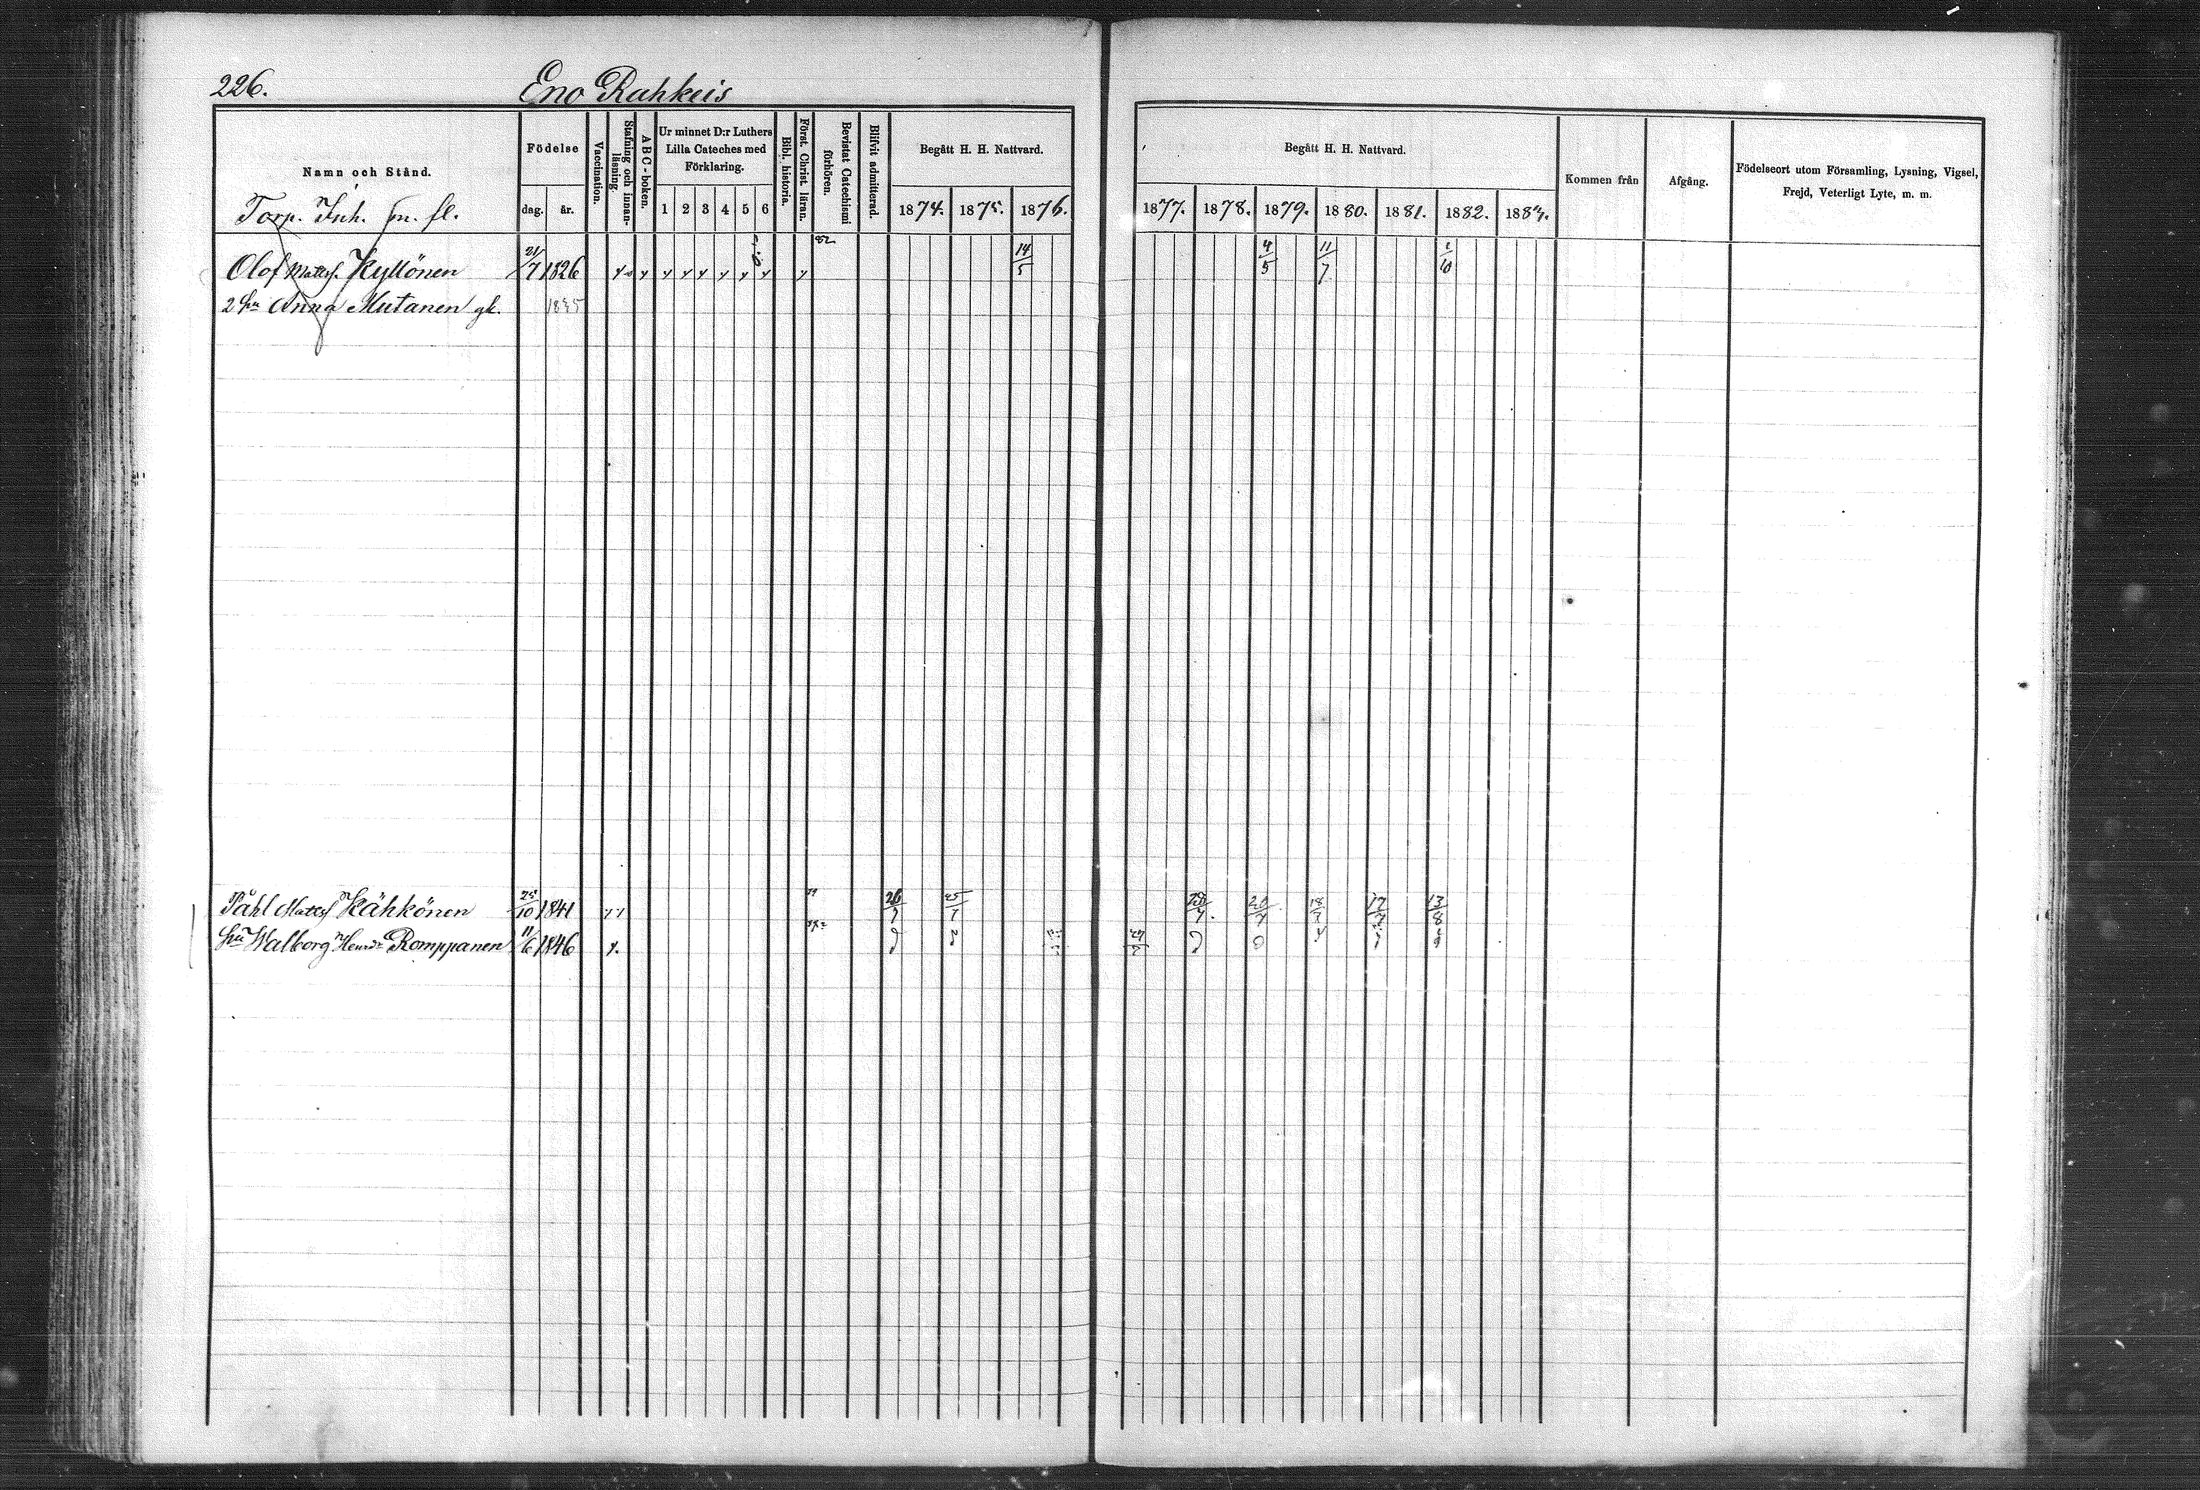 226. Eno Rahkeis
Namn och Stånd.
Födelse
dag. år.
Vaccination.
Stafning och innanläsning.
ABC-boken.
Ur minnet D:r Luthers Lilla Cateches med Förklaring.
1 2 3 4 5 6
Bibl. historia.
Först. Christ. läran.
Bevistat Catechismi förhören.
Blifvit admitterad.
Begått H. H. Nattvard.
1874. 1875. 1876.
Begått H. H. Nattvard.
1877. 1878. 1879. 1880. 1881. 1882. 1883.
Kommen från
Afgång.
Födelseort utom Församling, Lysning, Vigsel, Frejd, Veterligt Lyte, m. m.
Torp. Inh. m. fl.
Olof Matts. Kyllönen 21/7 1826 82 14/5 4/5 11/7 1/10
2 hu Anna Mutanen gk. 1835
Påhl Matts Kähkönen 25/10 1841 26/7 25/7 20/7 18/7 17/7 13/8
hu Walborg Henrs Romppanen 11/6 1846